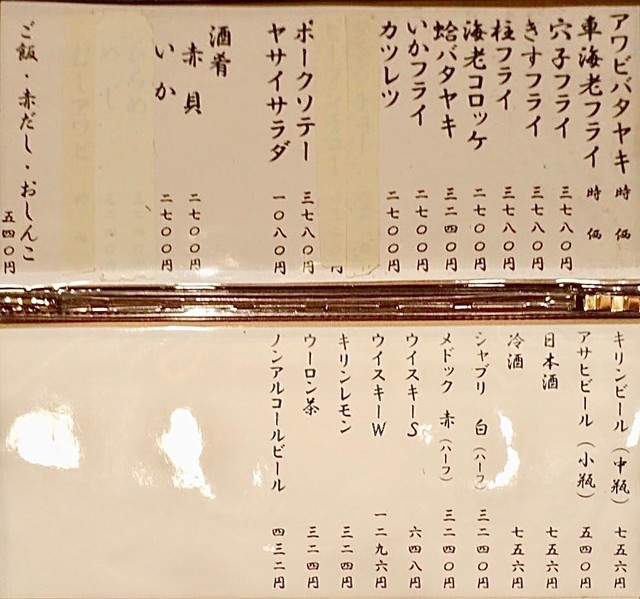 アワビバタヤキ 時価
車海老フライ 時価
穴子フライ 三七八〇円
きすフライ 三七八〇円
柱フライ 三七八〇円
海老コロッケ 二七〇〇円
蛤バタヤキ 三二四〇円
いかフライ 二七〇〇円
カツレツ 二七〇〇円
円
ポークソテー 三七八〇円
ヤサイサラダ 一〇八〇円
酒肴
赤貝 二七〇〇円
いか 二七〇〇円
ご飯・赤だし・おしんこ 五四〇円
キリンビール(中瓶) 七五六円
アサヒビール(小瓶) 五四〇円
日本酒 七五六円
冷酒 七五六円
シャブリ 白(ハーフ) 三二四〇円
メドック 赤(ハーフ) 三二四〇円
ウイスキーS 六四八円
ウイスキーW 一二九六円
キリンレモン 三二四円
ウーロン茶 三二四円
ノンアルコールビール 四三二円